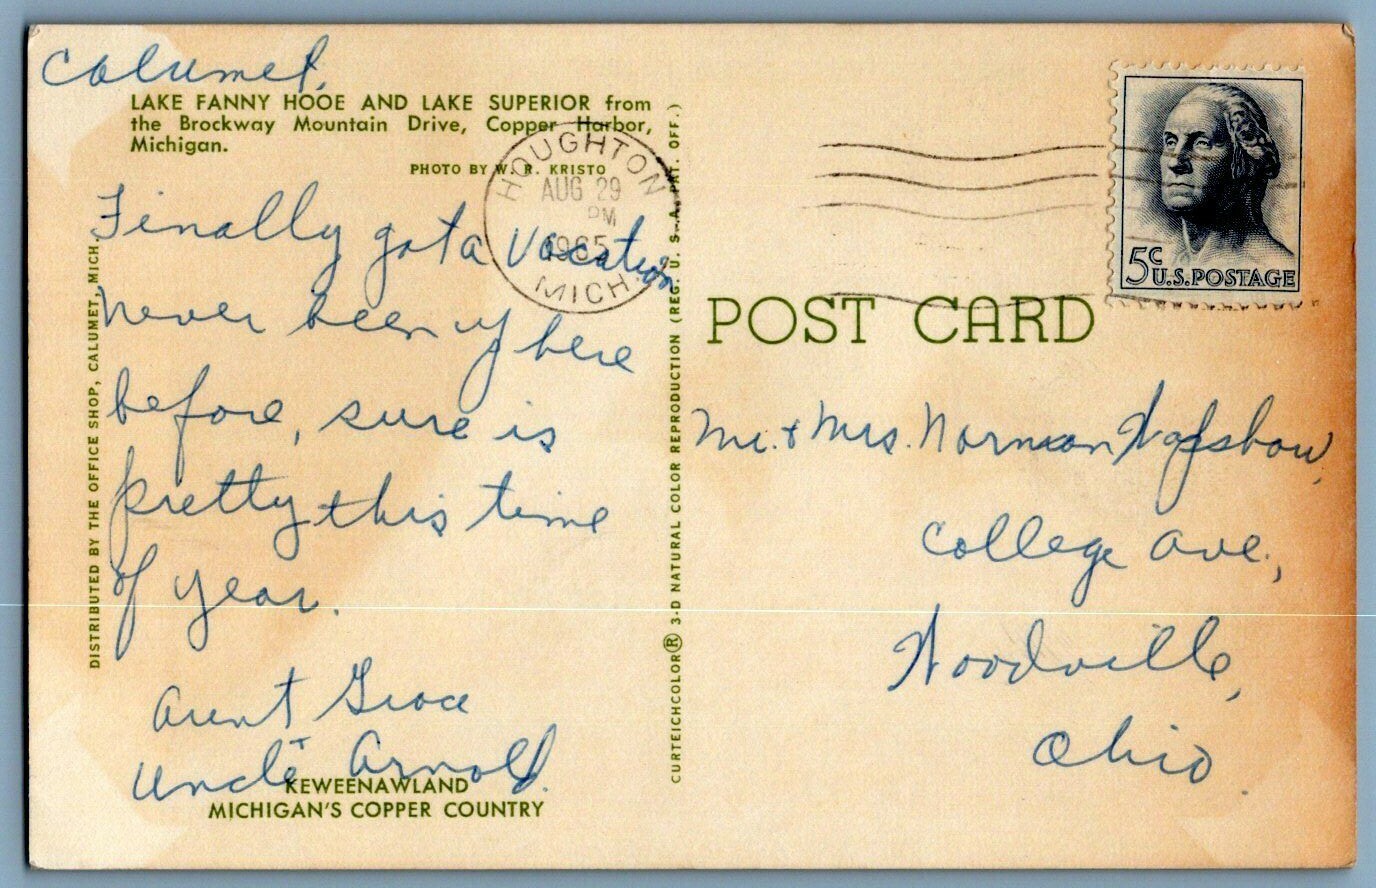 Calumet,
LAKE FANNY HOOE AND LAKE SUPERIOR from
the Brockway Mountain Drive, Copper Harbor,
Michigan.
PHOTO BY W. R. KRISTO
Finally got a vacation
never been up here
before, sure is
pretty this time
of year.
Aunt Grace
Uncle Arnold.
KEWEENAWLAND
MICHIGAN'S COPPER COUNTRY
DISTRIBUTED BY THE OFFICE SHOP, CALUMET, MICH.
HOUGHTON
AUG 29
PM
1965
MICH.
CURTEICHCOLOR® 3-D NATURAL COLOR REPRODUCTION (REG. U. S. A. PAT. OFF.)
5c
U.S. POSTAGE
POST CARD
Mr. & Mrs. Norman
College Ave.,
Woodville,
Ohio.